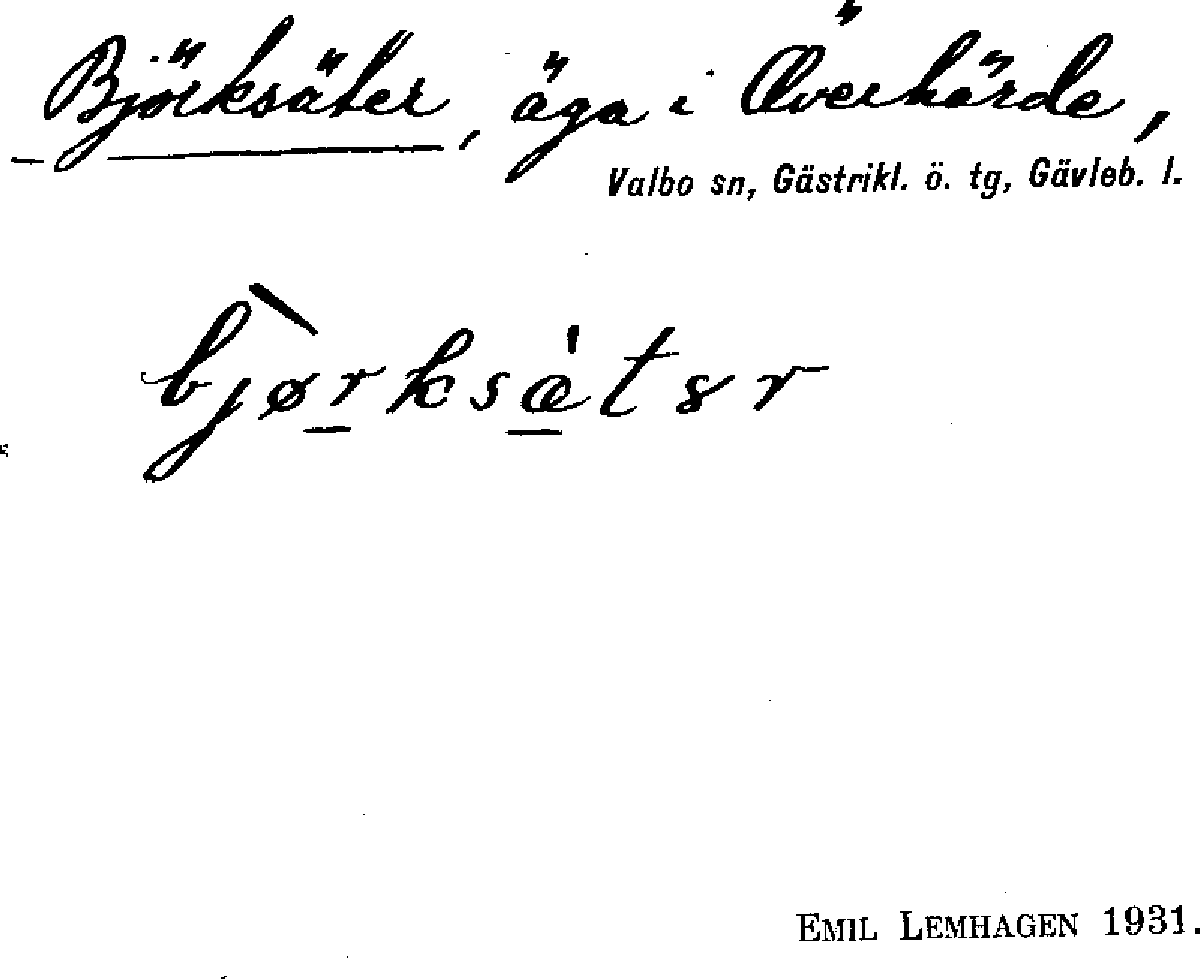 Björksäter, äga i Överhärde,
Valbo sn, Gästrikl. ö. tg, Gävleb. l.
bjø̀rksæ̍tər
EMIL LEMHAGEN 1931.